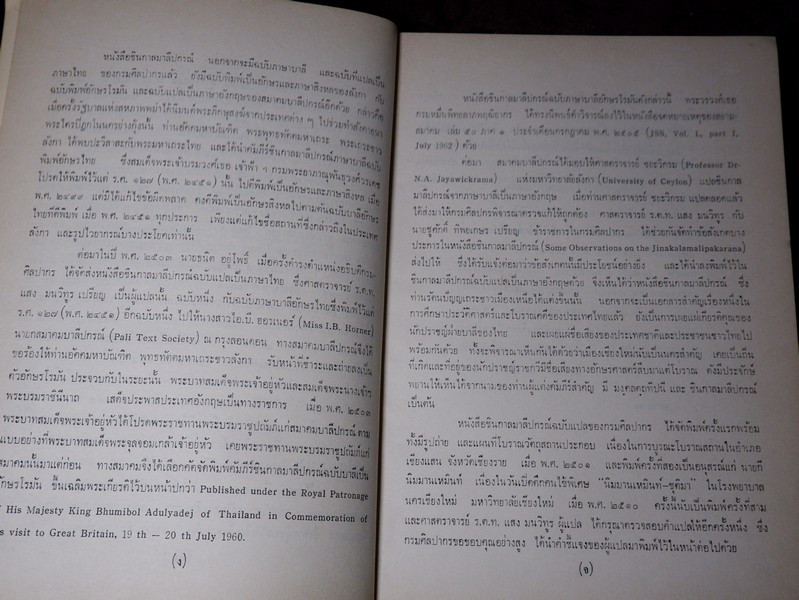 หนังสือชินกาลมาลีปกรณ์ นอกจากจะมีฉบับภาษาบาลี และฉบับที่แปลเป็น
ภาษาไทย ของกรมศิลปากรแล้ว ยังมีฉบับพิมพ์เป็นอักษรและภาษาสิงหลของลังกา กับ
ฉบับพิมพ์อักษรโรมัน และฉบับแปลเป็นภาษาอังกฤษของสมาคมบาลีปกรณ์อีกด้วย กล่าวคือ
เมื่อครั้งรัฐบาลแห่งสหภาพพม่าได้นิมนต์พระภิกษุสงฆ์จากประเทศต่าง ๆ ไปร่วมทำสังคายนา
พระไตรปิฎกในนครย่างกุ้งนั้น ท่านอัคคมหาบัณฑิต พระพุทธทัตตมหาเถระ พระเถระชาว
ลังกา ได้พบปะวิสาสะกับพระมหาเถระไทย และได้นำคัมภีร์ชินกาลมาลีปกรณ์ภาษาบาลีฉบับ
พิมพ์อักษรไทย ซึ่งสมเด็จพระเจ้าบรมวงศ์เธอ เจ้าฟ้า ฯ กรมพระยาภาณุพันธุวงศ์วรเดช
โปรดให้พิมพ์ไว้แต่ ร.ศ. ๑๒๗ (พ.ศ. ๒๔๕๑) นั้น ไปตีพิมพ์เป็นอักษรและภาษาสิงหล เมื่อ
พ.ศ. ๒๔๙๙ แต่มิได้แก้ไขข้อผิดพลาด คงตีพิมพ์เป็นอักษรสิงหลไปตามต้นฉบับบาลีอักษร
ไทยที่ตีพิมพ์ เมื่อ พ.ศ. ๒๔๕๑ ทุกประการ เพียงแต่แก้ไขชื่อสถานที่ซึ่งกล่าวถึงในประเทศ
ลังกา และรูปไวยากรณ์บางประโยคเท่านั้น
ต่อมาในปี พ.ศ. ๒๕๐๓ นายธนิต อยู่โพธิ์ เมื่อครั้งดำรงตำแหน่งอธิบดีกรม-
ศิลปากร ได้จัดส่งหนังสือชินกาลมาลีปกรณ์ฉบับแปลเป็นภาษาไทย ซึ่งศาสตราจารย์ ร.ต.ท.
แสง มนวิทูร เปรียญ เป็นผู้แปลนั้น ฉบับหนึ่ง กับฉบับภาษาบาลีอักษรไทยซึ่งพิมพ์ไว้แต่
ร.ศ. ๑๒๗ (พ.ศ. ๒๔๕๑) อีกฉบับหนึ่ง ไปให้นางสาวไอ.บี. ฮอรเนอร์ (Miss I.B. Horner)
นายกสมาคมบาลีปกรณ์ (Pali Text Society) ณ กรุงลอนดอน ทางสมาคมบาลีปกรณ์จึงได้
ขอร้องให้ท่านอัคคมหาบัณฑิต พุทธทัตตมหาเถระชาวลังกา รับหน้าที่ชำระและถ่ายลงเป็น
ตัวอักษรโรมัน ประจวบกับในระยะนั้น พระบาทสมเด็จพระเจ้าอยู่หัวและสมเด็จพระนางเจ้าฯ
พระบรมราชินีนาถ เสด็จประพาสประเทศอังกฤษเป็นทางราชการ เมื่อ พ.ศ. ๒๕๐๓
พระบาทสมเด็จพระเจ้าอยู่หัวได้โปรดพระราชทานพระบรมราชูปถัมภ์แก่สมาคมบาลีปกรณ์ ตาม
แบบอย่างที่พระบาทสมเด็จพระจุลจอมเกล้าเจ้าอยู่หัว เคยพระราชทานพระบรมราชูปถัมภ์แก่
สมาคมนั้นมาแต่ก่อน ทางสมาคมจึงได้เลือกคัดจัดพิมพ์คัมภีร์ชินกาลมาลีปกรณ์ฉบับบาลีเป็น
อักษรโรมัน ขึ้นเฉลิมพระเกียรติไว้บนหน้าปกว่า Published under the Royal Patronage
His Majesty King Bhumibol Adulyadej of Thailand in Commemoration of
s visit to Great Britain, 19 th — 20 th July 1960.
(ง)
หนังสือชินกาลมาลีปกรณ์ฉบับภาษาบาลีอักษรโรมันดังกล่าวนี้ พระวรวงศ์เธอ
กรมหมื่นพิทยลาภพฤฒิยากร ได้ทรงนิพนธ์คำวิจารณ์ลงไว้ในหนังสือจดหมายเหตุของสยาม-
สมาคม เล่ม ๕๐ ภาค ๑ ประจำเดือนกรกฎาคม พ.ศ. ๒๕๐๕ (JSS, Vol. L, part 1,
July 1962) ด้วย
ต่อมา สมาคมบาลีปกรณ์ได้มอบให้ศาสตราจารย์ ชยะวิกรม (Professor Dr-
N.A. Jayawickrama) แห่งมหาวิทยาลัยลังกา (University of Ceylon) แปลชินกาล
มาลีปกรณ์จากภาษาบาลีเป็นภาษาอังกฤษ เมื่อท่านศาสตราจารย์ ชยะวิกรม แปลตลอดแล้ว
ได้ส่งมาให้กรมศิลปกรพิจารณาตรวจแก้ให้ถูกต้อง ศาสตราจารย์ ร.ต.ท. แสง มนวิทูร กับ
นายชูศักดิ์ ทิพย์เกษร เปรียญ ข้าราชการในกรมศิลปากร ได้ช่วยกันจัดทำข้อสังเกตบาง
ประการในหนังสือชินกาลมาลีปกรณ์ (Some Observations on the Jinakalamalipakarana)
ส่งไปให้ ซึ่งได้รับแจ้งต่อมาว่าข้อสังเกตนั้นมีประโยชน์อย่างยิ่ง และได้นำลงพิมพ์ไว้ใน
ชินกาลมาลีปกรณ์ฉบับแปลเป็นภาษาอังกฤษด้วย จึงเห็นได้ว่าหนังสือชินกาลมาลีปกรณ์ ซึ่ง
ท่านรัตนปัญญาเถระชาวเมืองเหนือได้แต่งขึ้นนั้น นอกจากจะเป็นเอกสารสำคัญเรื่องหนึ่งใน
การศึกษาประวัติศาสตร์และโบราณคดีของประเทศไทยแล้ว ยังเป็นการเผยแผ่เกียรติคุณของ
นักปราชญ์ฝ่ายบาลีของไทย และเผยแผ่ชื่อเสียงของประเทศชาติและประชาชนชาวไทยไป
พร้อมกันด้วย ทั้งจะพิจารณาเห็นกันได้ด้วยว่าเมืองเชียงใหม่นับเป็นนครสำคัญ เคยเป็นถิ่น
ที่เกิดและที่อยู่ของนักปราชญ์ราชกวีมีชื่อเสียงทางอักษรศาสตร์สืบมาแต่โบราณ ดังมีประจักษ์
พยานให้เห็นได้จากนามของท่านผู้แต่งคัมภีร์สำคัญ มี มงฺคลตฺถทีปนี และ ชินกาลมาลีปกรณ์
เป็นต้น
หนังสือชินกาลมาลีปกรณ์ฉบับแปลของกรมศิลปากร ได้จัดพิมพ์ครั้งแรกพร้อม
ทั้งมีรูปถ่าย และแผนที่โบราณวัตถุสถานประกอบ เนื่องในการบูรณะโบราณสถานในอำเภอ
เชียงแสน จังหวัดเชียงราย เมื่อ พ.ศ. ๒๕๐๑ และพิมพ์ครั้งที่สองเป็นอนุสรณ์แก่ นายกี
นิมมานเหมินท์ เนื่องในวันเปิดตึกคนไข้พิเศษ “นิมมานเหมินท์-ชุติมา” ในโรงพยาบาล
นครเชียงใหม่ มหาวิทยาลัยเชียงใหม่ เมื่อ พ.ศ. ๒๕๑๐ ครั้งนี้นับเป็นพิมพ์ครั้งที่สาม
และศาสตราจารย์ ร.ต.ท. แสง มนวิทูร ผู้แปล ได้กรุณาตรวจสอบคำแปลให้อีกครั้งหนึ่ง ซึ่ง
กรมศิลปากรขอขอบคุณอย่างสูง ได้นำคำชี้แจงของผู้แปลมาพิมพ์ไว้ในหน้าต่อไปด้วย
(จ)